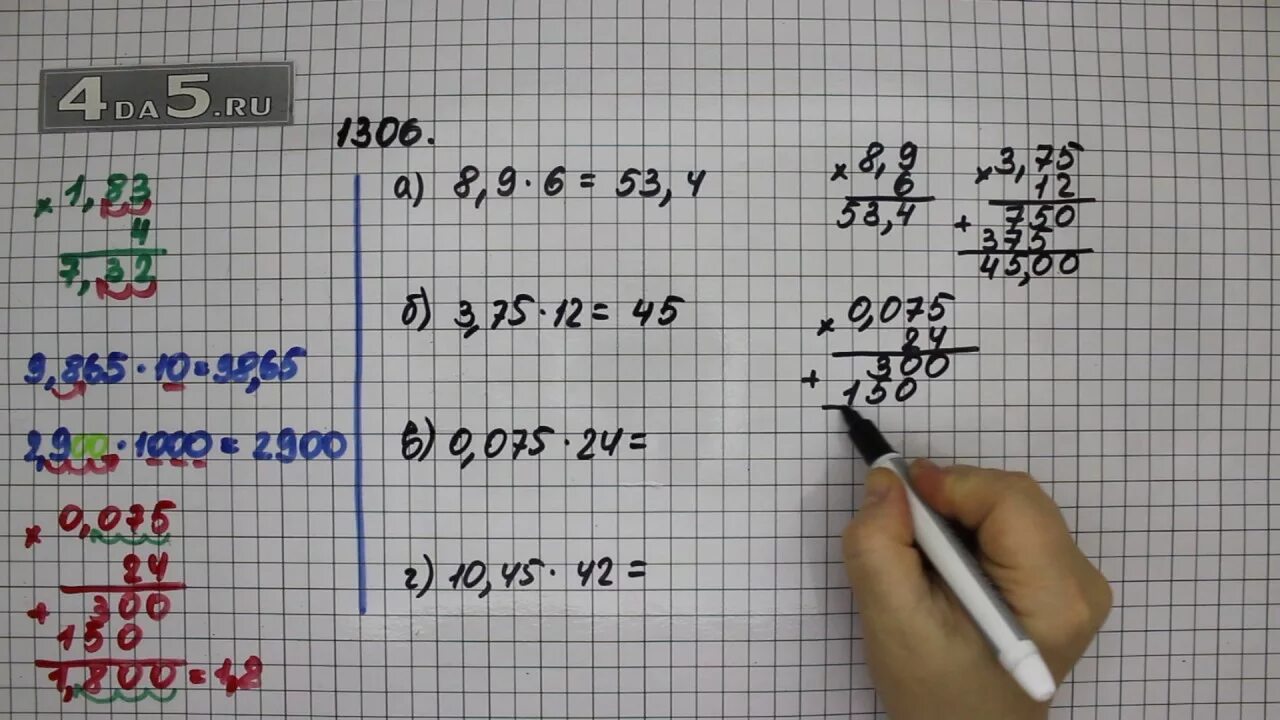 4DA5.RU
1306.
× 1,83
4
7,32
9,865 · 10 = 98,65
2,900 · 1000 = 2900
× 0,075
24
+ 300
150
1,800 = 1,8
а) 8,9 · 6 = 53,4
б) 3,75 · 12 = 45
в) 0,075 · 24 =
г) 10,45 · 42 =
× 8,9
6
53,4
× 3,75
12
+ 750
375
45,00
× 0,075
24
+ 300
150